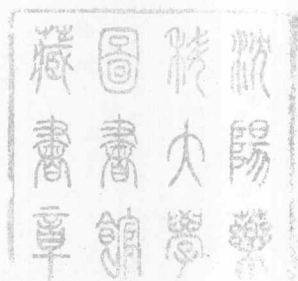 沈陽藥
科大學
圖書館
藏書章